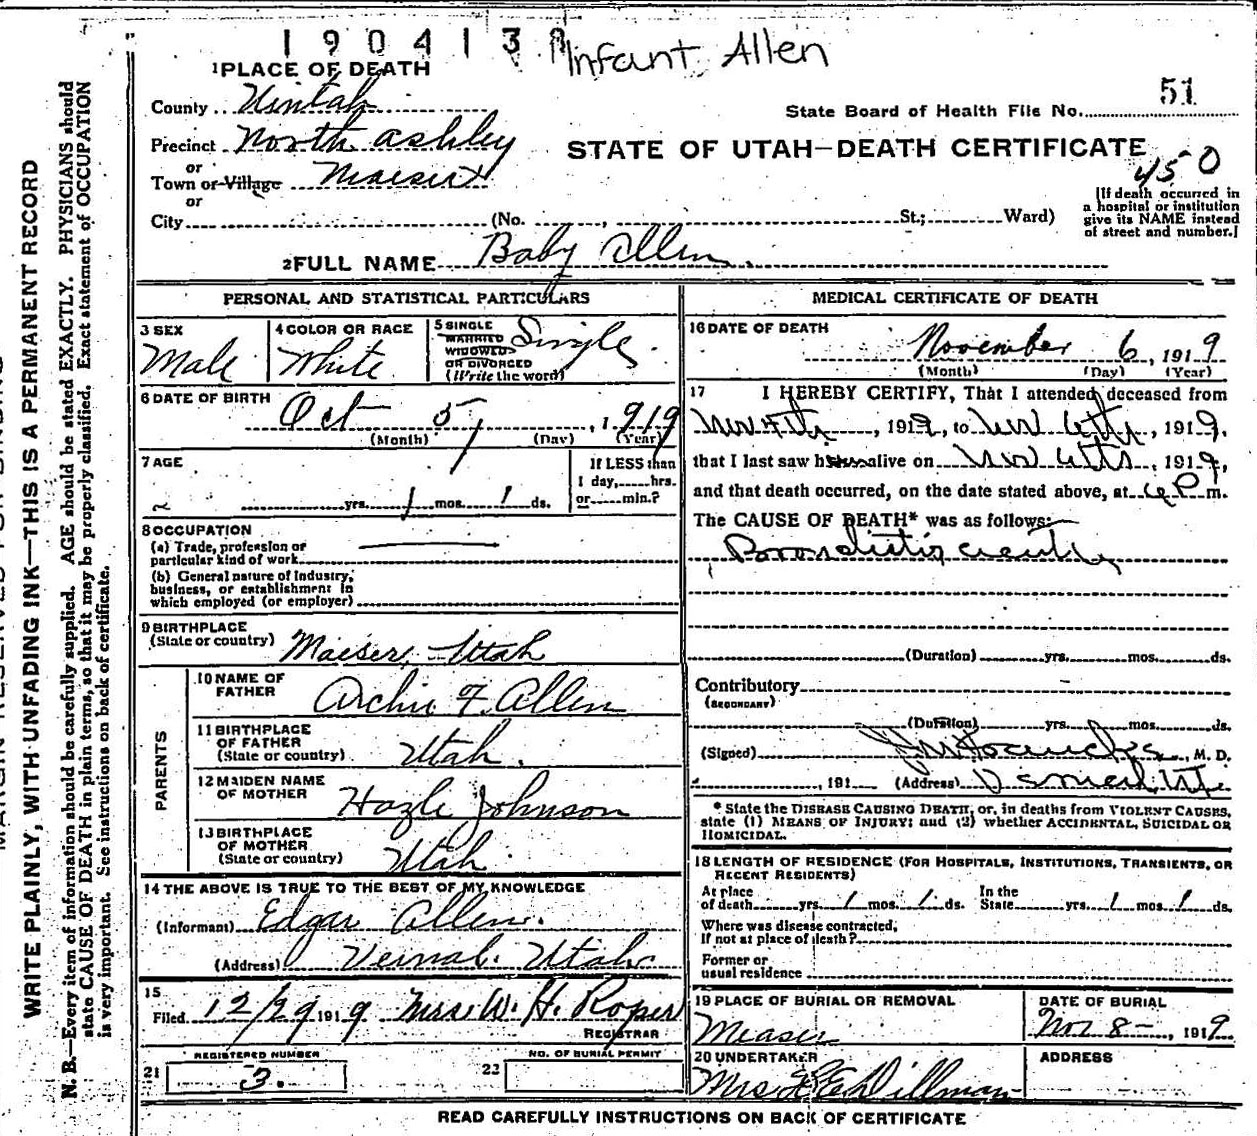 190413
Infant Allen
1 PLACE OF DEATH
County Uintah
State Board of Health File No. 51
Precinct North Ashley
STATE OF UTAH—DEATH CERTIFICATE
or
450
Town or Village Maeser
or
City (No. , St.; Ward)
[If death occurred in a hospital or institution give its NAME instead of street and number.]
2 FULL NAME Baby Allen.
PERSONAL AND STATISTICAL PARTICULARS
3 SEX
Male
4 COLOR OR RACE
White
5 SINGLE
MARRIED
WIDOWED
OR DIVORCED
(Write the word)
Single
6 DATE OF BIRTH
Oct 5, 1919
(Month) (Day) (Year)
7 AGE
yrs. 1 mos. 1 ds.
If LESS than
1 day, hrs.
or min.?
8 OCCUPATION
(a) Trade, profession or
particular kind of work
(b) General nature of industry,
business, or establishment in
which employed (or employer)
9 BIRTHPLACE
(State or country) Maeser, Utah
PARENTS
10 NAME OF
FATHER Archie F. Allen
11 BIRTHPLACE
OF FATHER
(State or country) Utah.
12 MAIDEN NAME
OF MOTHER Hazle Johnson
13 BIRTHPLACE
OF MOTHER
(State or country) Utah.
14 THE ABOVE IS TRUE TO THE BEST OF MY KNOWLEDGE
(Informant) Edgar Allen.
(Address) Vernal. Utah.
15
Filed 12/29 1919 Mrs. W. H. Roper
REGISTRAR
REGISTERED NUMBER
21 3.
NO. OF BURIAL PERMIT
22
MEDICAL CERTIFICATE OF DEATH
16 DATE OF DEATH
November 6, 1919
(Month) (Day) (Year)
17 I HEREBY CERTIFY, That I attended deceased from
Nov 4th, 1919, to Nov 6th, 1919,
that I last saw h alive on Nov 6th, 1919,
and that death occurred, on the date stated above, at 6 P m.
The CAUSE OF DEATH* was as follows:
Bronchitis acute
(Duration) yrs. mos. ds.
Contributory
(SECONDARY)
(Duration) yrs. mos. ds.
(Signed) , M. D.
, 191 (Address)
* State the DISEASE CAUSING DEATH, or, in deaths from VIOLENT CAUSES,
state (1) MEANS OF INJURY; and (2) whether ACCIDENTAL, SUICIDAL OR
HOMICIDAL.
18 LENGTH OF RESIDENCE (FOR HOSPITALS, INSTITUTIONS, TRANSIENTS, OR
RECENT RESIDENTS)
At place
of death yrs. 1 mos. 1 ds.
In the
State yrs. 1 mos. 1 ds.
Where was disease contracted,
If not at place of death?
Former or
usual residence
19 PLACE OF BURIAL OR REMOVAL
Measer
DATE OF BURIAL
Nov 8 - , 1919
20 UNDERTAKER
Mrs Dillman
ADDRESS
READ CAREFULLY INSTRUCTIONS ON BACK OF CERTIFICATE
WRITE PLAINLY, WITH UNFADING INK—THIS IS A PERMANENT RECORD
N. B.—Every item of information should be carefully supplied. AGE should be stated EXACTLY. PHYSICIANS should
state CAUSE OF DEATH in plain terms, so that it may be properly classified. Exact statement of OCCUPATION
is very important. See instructions on back of certificate.